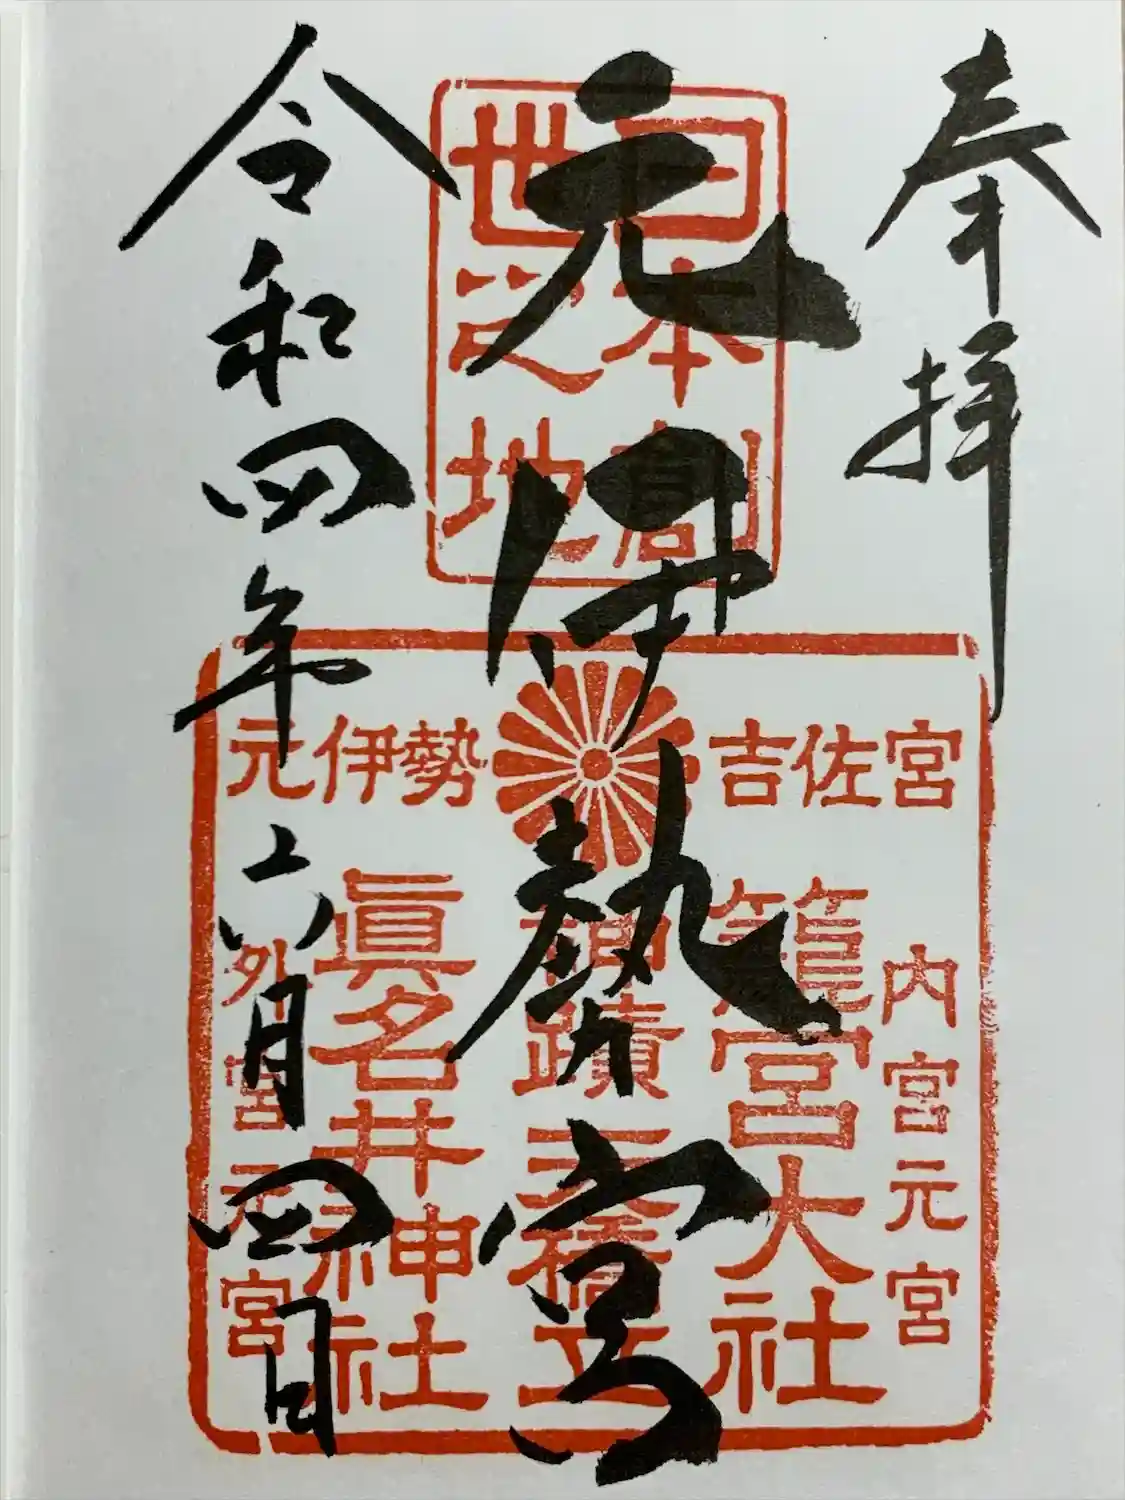 奉拝
元伊勢宮
令和四年六月四日
日本創
世之地
吉佐宮
元伊勢
内宮元宮
籠宮大社
神蹟天橋立
眞名井神社
外宮元宮